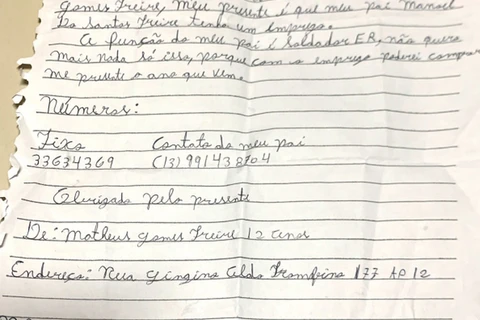 gomes Freire, meu presente é que meu pai Manoel
Da Santos Freire tenha um emprego.
A função do meu pai é Soldador ER, não quero
mais nada só isso, porque com o emprego poderei comprar
me presente o ano que vem.
Números:
Fixo Contato do meu pai
33634369 (13) 991438704
Obrigado pelo presente
De: Matheus gomes Freire 12 anos
Endereço: Rua 177 AP 12